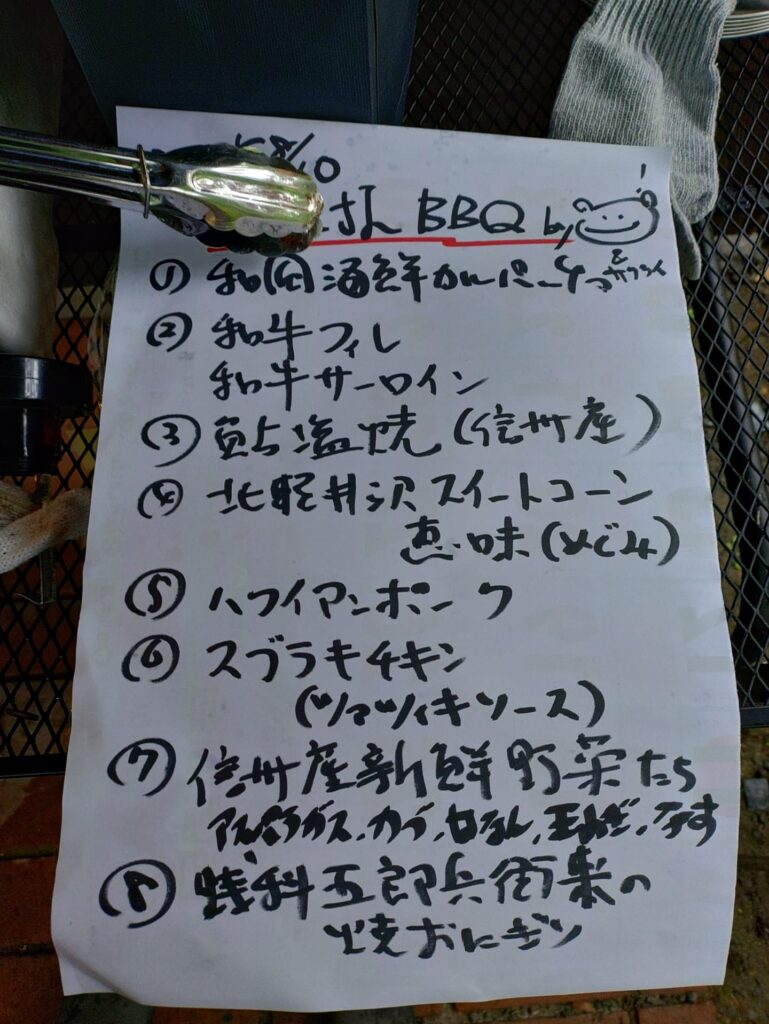 8/10
さん BBQ by
① 和風海鮮カルパッチョ
② 和牛フィレ
和牛サーロイン
③ 鮎塩焼(信州産)
④ 北軽井沢スイートコーン
恵味(めぐみ)
⑤ ハワイアンポーク
⑥ スブラキチキン
(ツァツィキソース)
⑦ 信州産新鮮野菜たち
アスパラガス、カブ、甘なん、玉ねぎ、なす
⑧ 蓼科五郎兵衛米の
焼おにぎり